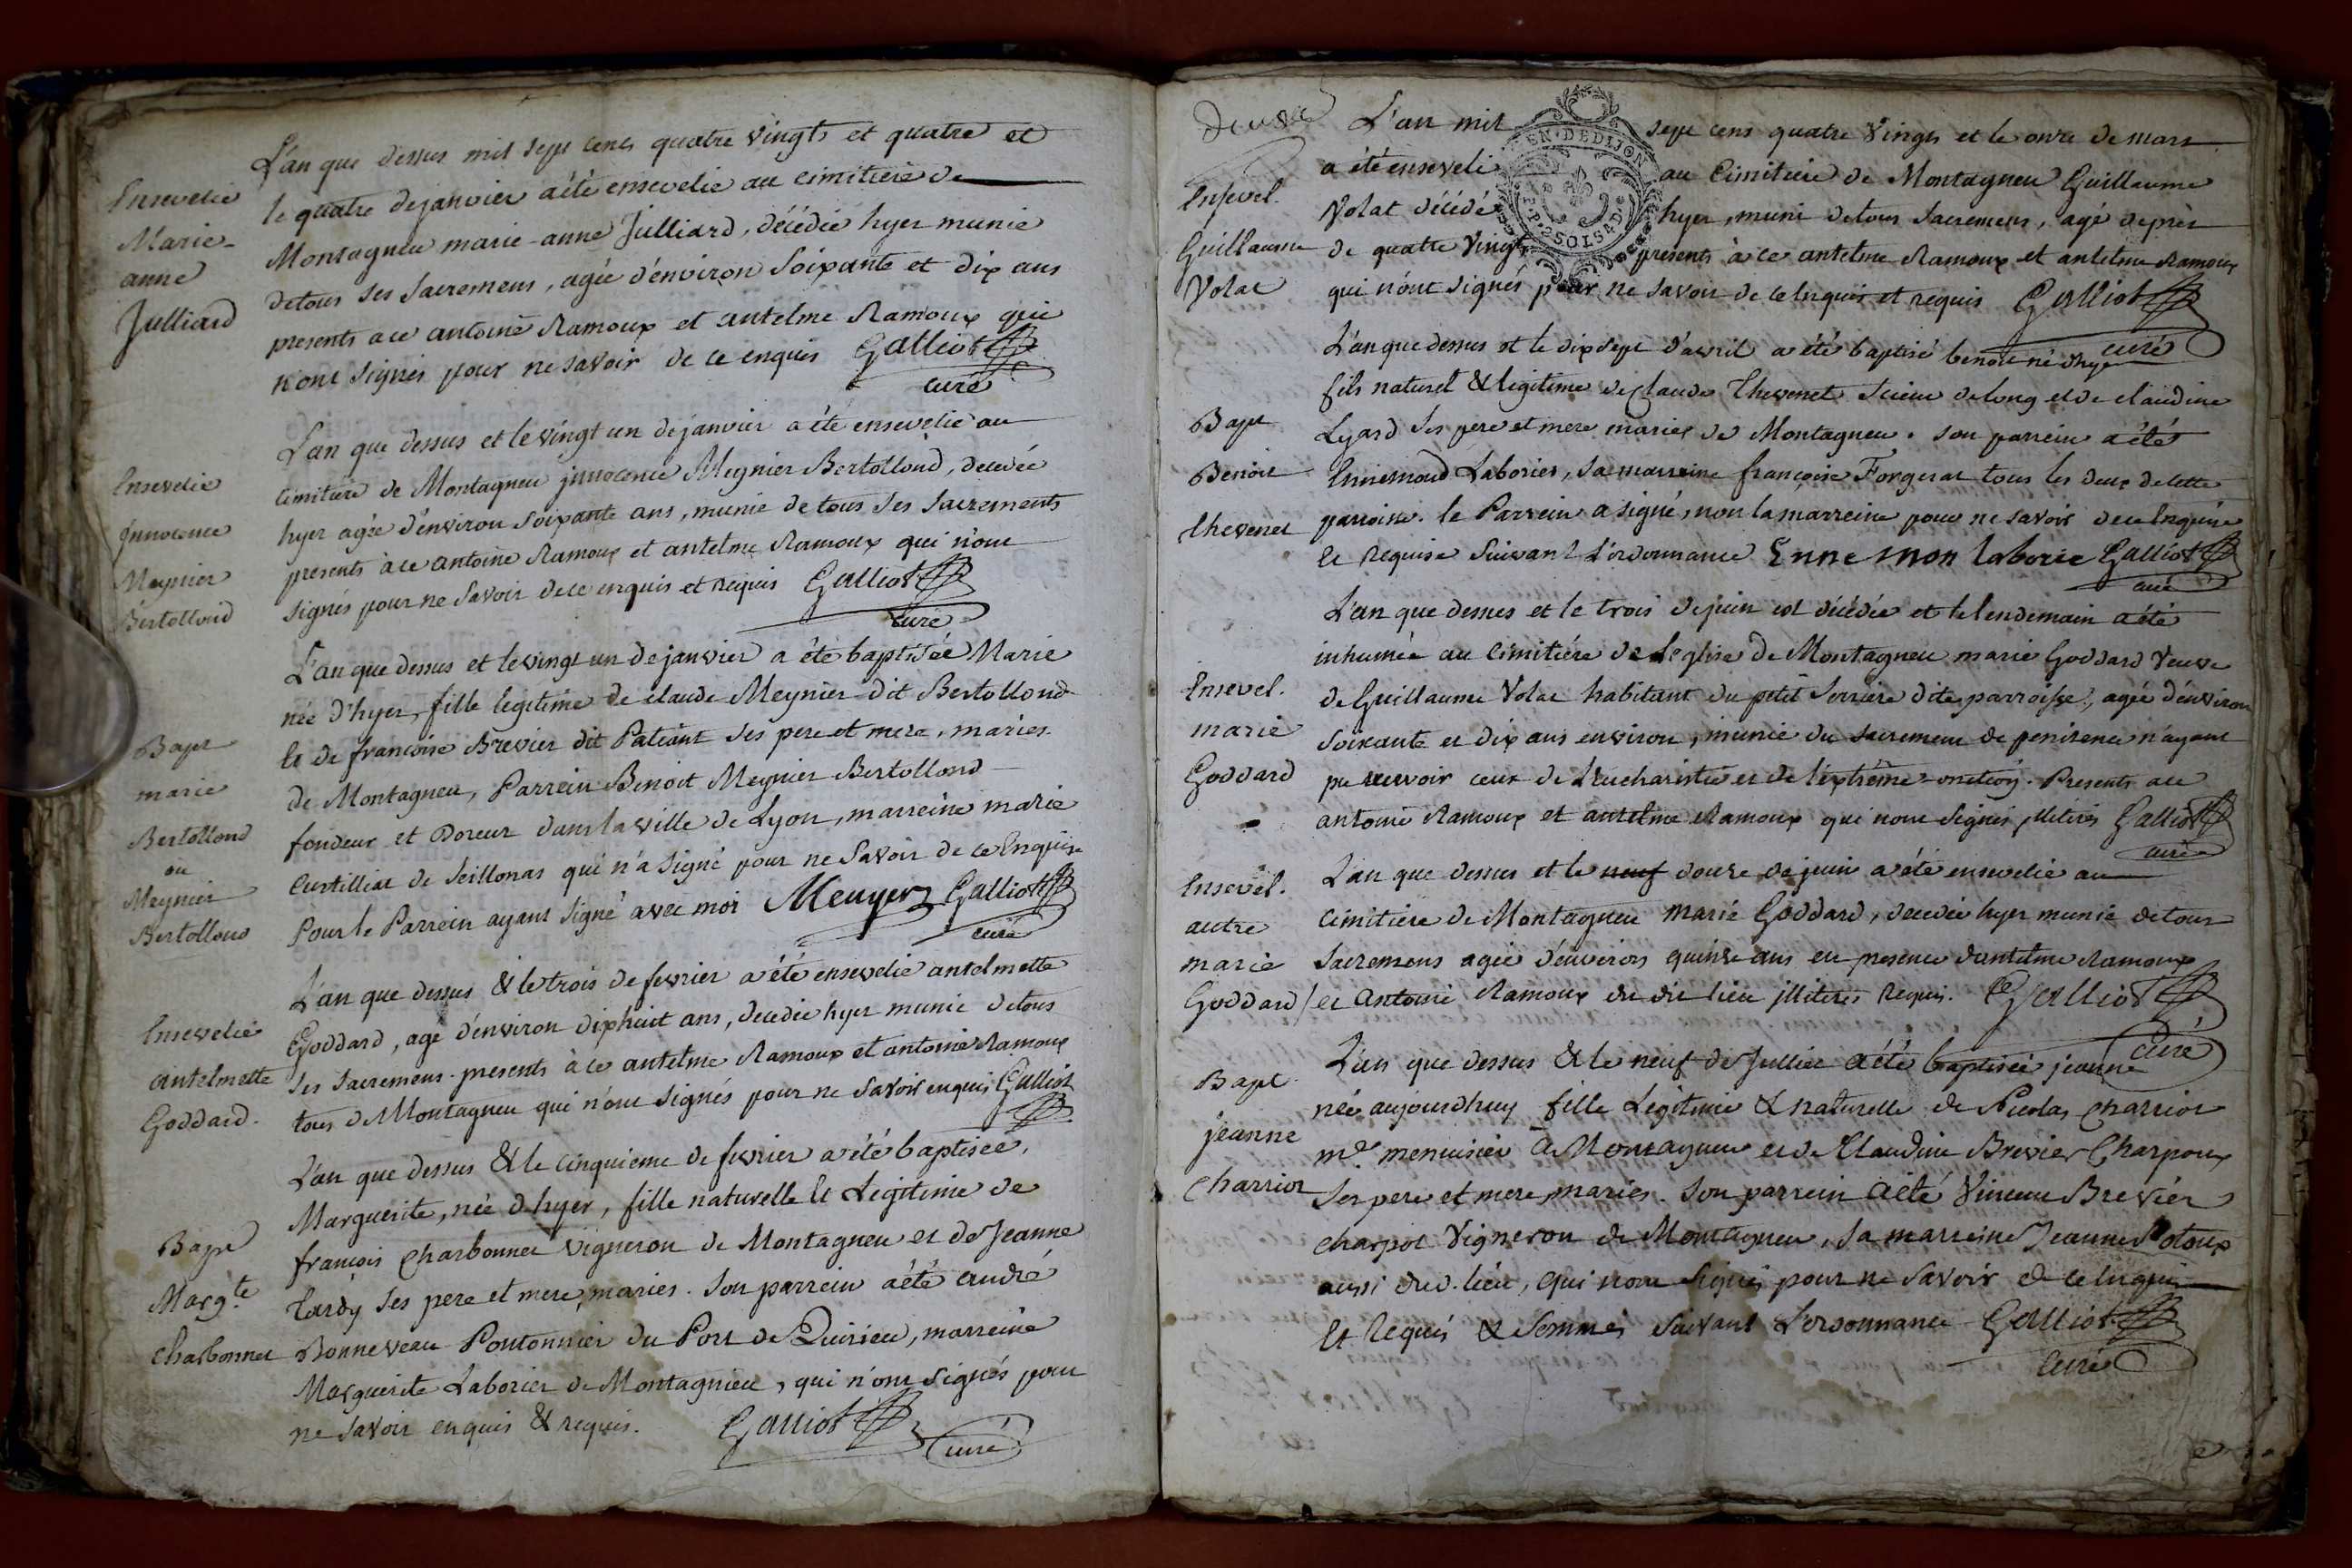 L'an que dessus mil sept cens quatre vingts et quatre et
Ensevelie
le quatre de janvier a été ensevelie au cimitiere de
Marie-
Montagneu marie-anne Julliard, décédée hyer munie
anne
de tous ses sacremens, agée d'environ soixante et dix ans
Julliard
presents a ce antoine Ramoux et antelme Ramoux qui
n'ont signés pour ne savoir de ce enquis Galliot
curé
L'an que dessus et le vingt un de janvier a été ensevelie au
Ensevelie
cimitiere de Montagneu jnnocence Meynier Bertollond, decedée
Jnnocence
hyer agée d'environ soixante ans, munie de tous ses sacrements
Meynier
presents à ce antoine Ramoux et antelme Ramoux qui n'ont
Bertollond
signés pour ne savoir de ce enquis et requis Galliot
curé
L'an que dessus et le vingt un de janvier a été baptisée Marie
née d'hyer, fille legitime de claude Meynier dit Bertollond
Bapt
et de francoise Brevier dit Patiant ses pere et mere, mariés
marie
de Montagneu, Parrein Benoit Meynier Bertollond
Bertollond
fondeur et Doreur dans la ville de Lyon, marreine marie
ou
Meynier
Curtilliat de Seillonas qui n'a signé pour ne savoir de ce Enquise
Bertollond
Pour le Parrein ayant signé avec moi Meuyer Galliot
curé
L'an que dessus & le trois de fevrier a été ensevelie antelmette
Ensevelie
Goddard, agé d'environ dixhuit ans, decedée hyer munie de tous
antelmette
ses sacremens. presents à ce antelme Ramoux et antoine Ramoux
Goddard.
tous de Montagneu qui n'ont signés pour ne savoir enquis Galliot
L'an que dessus & le cinquieme de fevrier a été baptisée,
Marguerite, née d'hyer, fille naturelle et Legitime de
Bapt
françois Charbonnet vigneron de Montagneu et de Jeanne
Marg.te
Tardy ses pere et mere, mariés. Son parrein a été andré
Charbonnet
Bonneveau Pontonnier du Port de Quirieu, marreine
Marguerite Laborier de Montagnieu, qui n'ont signés pour
ne savoir enquis & requis. Galliot
curé
L'an mil sept cens quatre vingts et le onze de mars
a été enseveli au Cimitiere de Montagneu Guillaume
Ensevel.
Volat décédé hyer, muni de tous sacremens, agé de près
Guillaume
de quatre vingts presents à ce antelme Ramoux et antelme Ramoux
Volat
qui n'ont signés pour ne savoir de ce Enquis et requis Galliot
curé
EN. DE DIJON
L'an que dessus et le dix sept d'avril a été baptisé benoit né d'hyer
fils naturel & legitime de Claude Thevenet Scieur de long et de claudine
Bapt
Lyard ses pere et mere mariés de Montagneu. Son parrein a été
Benoit
Ennemond Laborier, sa marreine françoise Forgerat tous les deux de cette
thevenet
parroisse. le Parrein a signé, non la marreine pour ne savoir de ce Enquise
et Requise Suivant l'ordonnance Enne mon laborie Galliot
curé
L'an que dessus et le trois de juin est décédée et le lendemain a été
inhumée au Cimitiére de l'eglise de Montagneu marie Goddard Veuve
Ensevel.
de Guillaume Volat habitant du petit Serriere dite parroisse, agée d'environ
marie
soixante et dix ans environ, munie du sacrement de penitence n'ayant
Goddard
pu recevoir ceux de l'Eucharistie et de l'extrême-onction. Presents a ce
antoine Ramoux et antelme Ramoux qui n'ont signés jlliterés Galliot
curé
L'an que dessus et le neuf douze de juin a été ensevelie au
Ensevel.
autre
cimitiere de Montagneu marie Goddard, decedée hyer munie de tous
marie
Sacremens agée d'environ quinze ans en presence d'antelme Ramoux
Goddard
et antoine Ramoux du dit lieu jlliterés Requis. Galliot
Curé
L'an que dessus & le neuf de Juillet a été baptisée jeanne
Bapt
née aujourdhuy fille Legitime & naturelle de Nicolas Charriot
jeanne
m.e menuisier à Montagneu et de Claudine Brevier Charpoux
Charriot
Ses pere et mere mariés. Son parrein a été Vincent Brevier
charpot vigneron de Montagneu, Sa marreine Jeanne
aussi du d. lieu, qui n'ont signés pour ne savoir de ce Enquis
Et Requis & Sommés Suivant L'ordonnance Galliot
curé